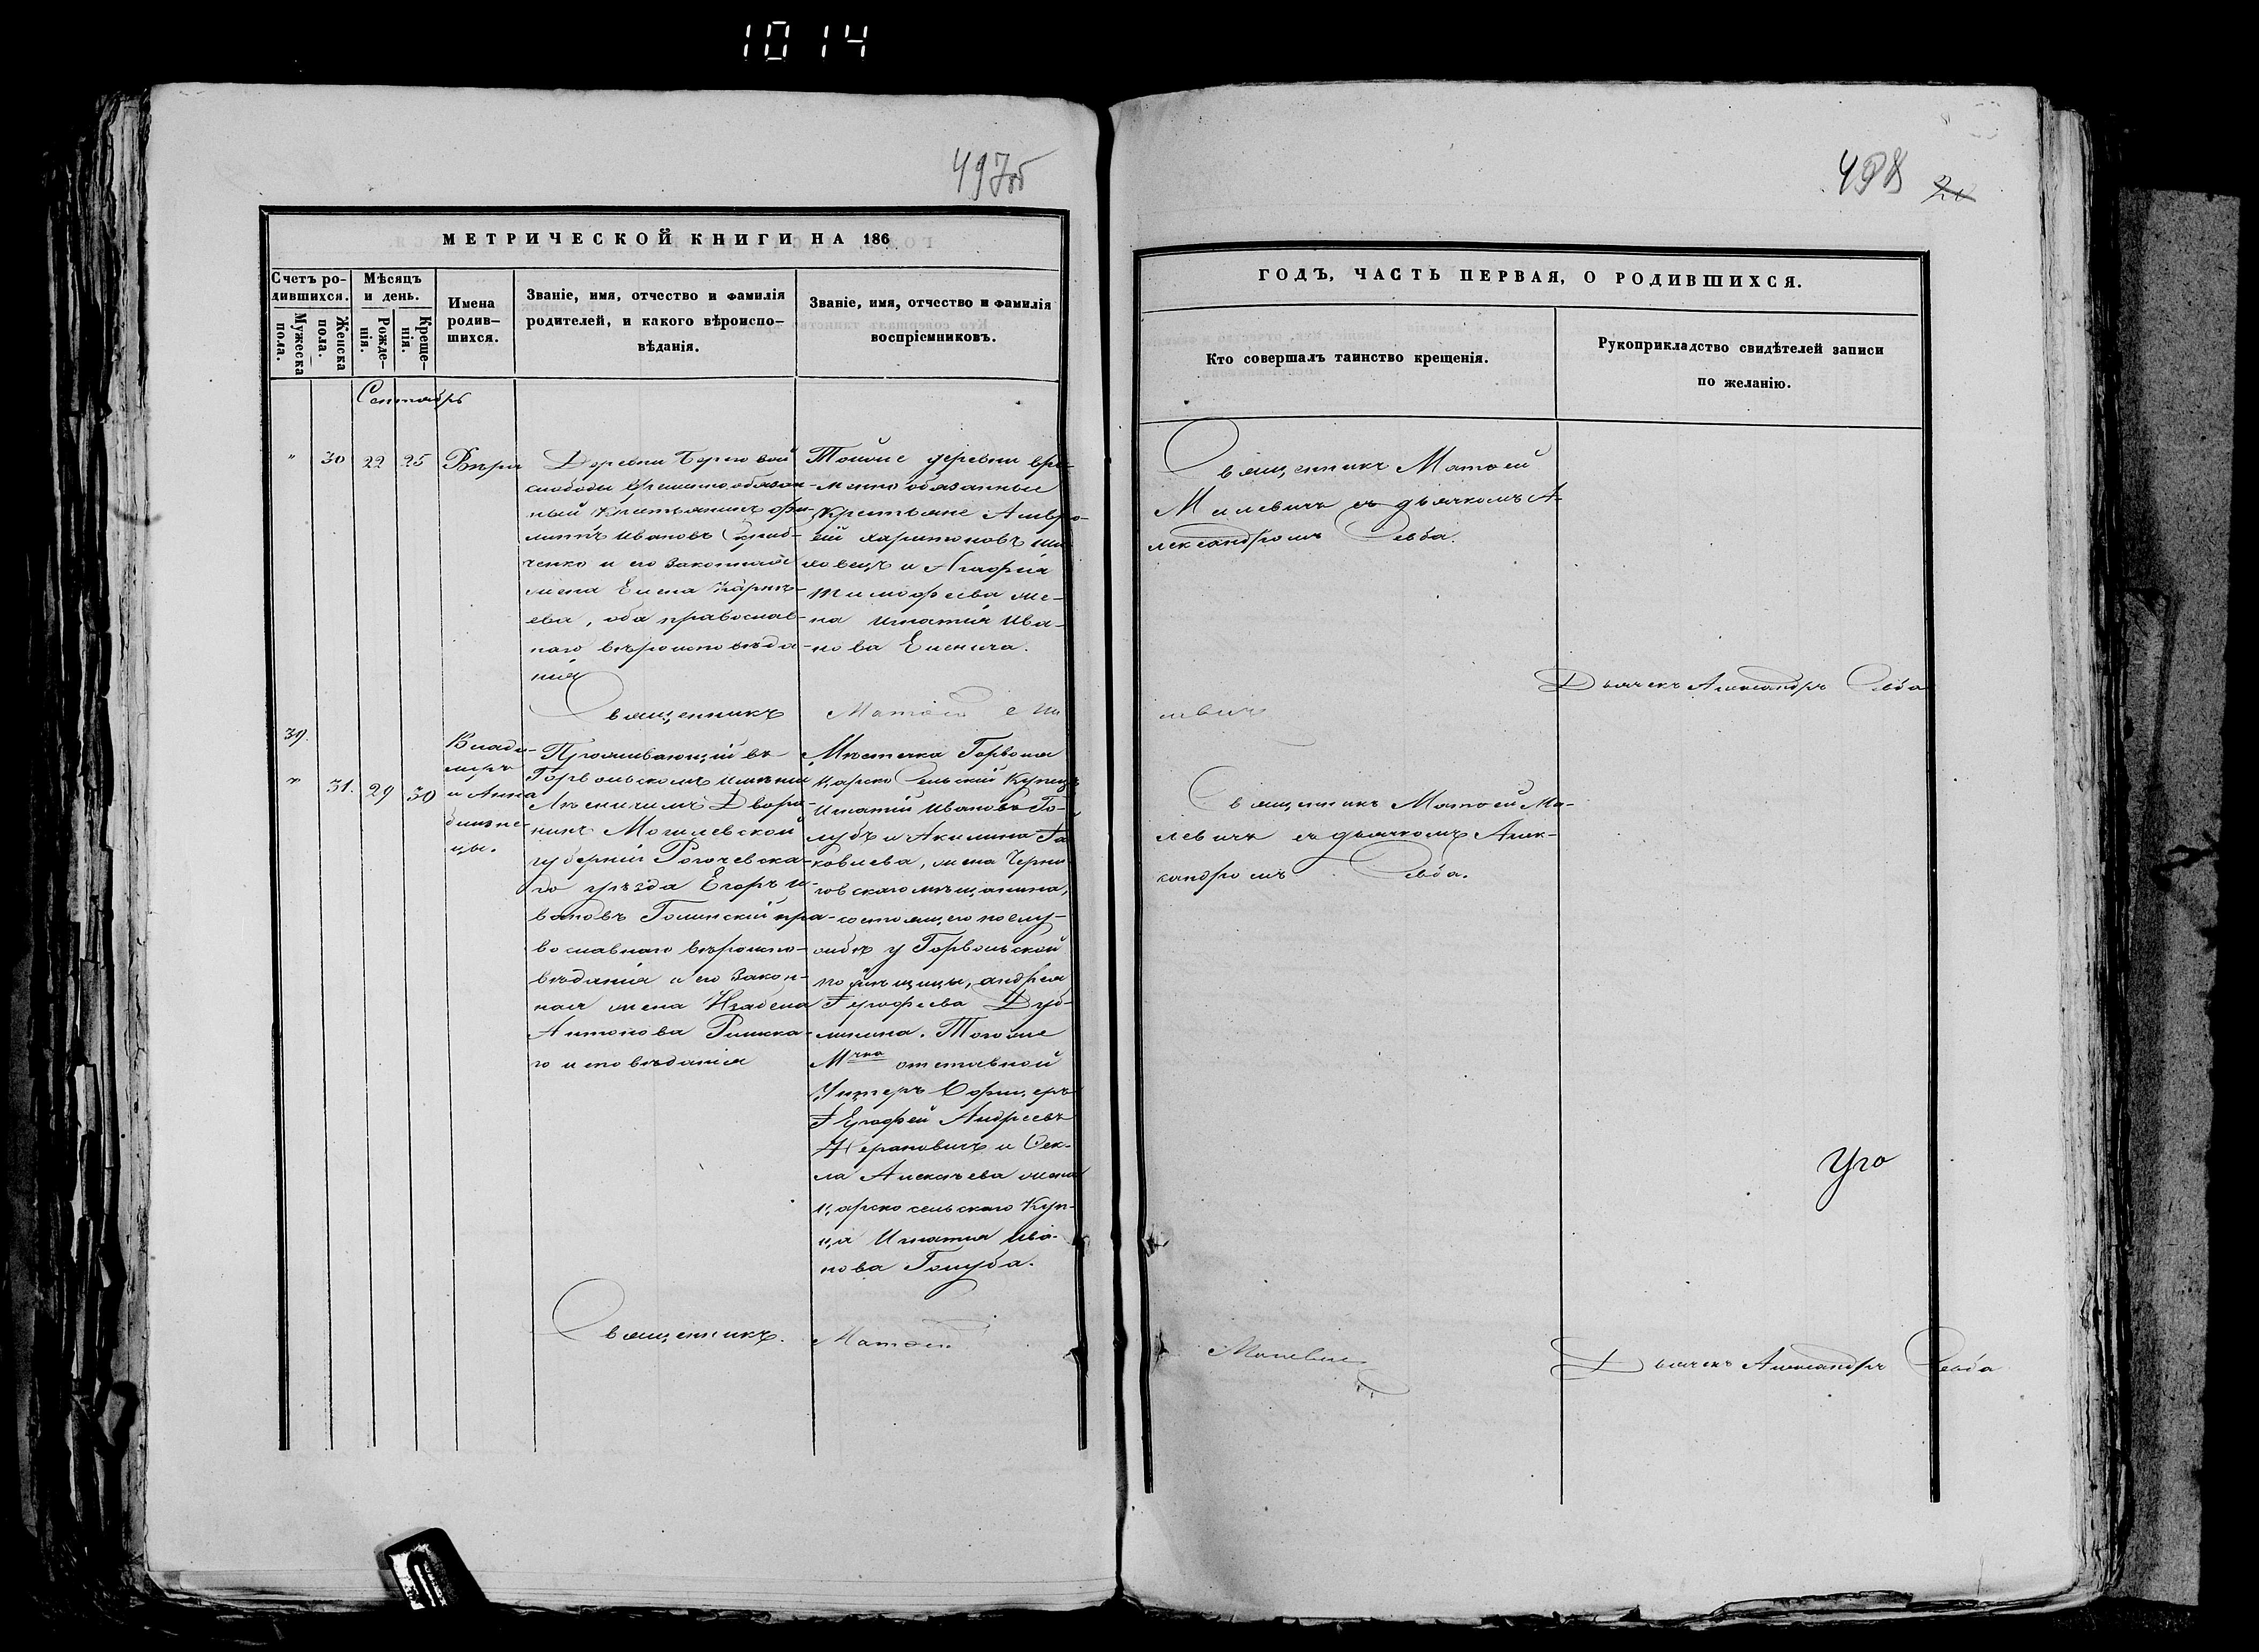 1014
497об
498 20
МЕТРИЧЕСКОЙ КНИГИ НА 186
Счетъ ро-
дившихся.
Мужеска
пола.
Женска
пола.
Мѣсяцъ
и день.
Рожде-
нія.
Креще-
нія.
Имена
родив-
шихся.
Званіе, имя, отчество и фамилія
родителей, и какого вѣроиспо-
вѣданія.
Званіе, имя, отчество и фамилія
воспріемниковъ.
Сентябрь
" 30 22 25 Вѣра
Деревни Береговой
слободы временнообязан-
ный крестьянинъ Фи-
липпъ Ивановъ
ченко и его законная
жена Елена
ева, оба православ-
наго вѣроисповѣда-
нія
Тойже деревни вре-
менно обязанные
крестьяне Амвро-
сій Харитоновъ
ховецъ и Агафія
Тимофеева же-
на Игнатія Ива-
нова
Священникъ Матѳей Ми
39.
" 31. 29 30
Влади-
миръ
и Анна
близне-
цы.
Проживающій въ
Горвольскомъ имѣніи
Лѣсничимъ Дворя-
нинъ Могилевской
губерніи Рогачевска-
го уѣзда Егоръ И-
вановъ Голинскій пра-
вославнаго вѣроиспо-
вѣданія и его Закон-
ная жена Изабела
Антонова Римска-
го исповѣданія
Мѣстечка Горволя
Царско Сельскій Купецъ
Игнатій Ивановъ Го-
лубъ и Акилина Я-
ковлева, жена Черни-
говскаго мѣщанина,
состоящего по слу-
жбѣ у Горвольской
помѣщицы, Андрея
Ерофеева Дуб-
инина. Тогоже
Мчка отставной
Унтеръ Офицеръ
Ерофей Андреевъ
Жерановичъ и Ѳек-
ла Алексѣева жена
царскосельскаго Куп-
ца Игнатія Ива-
нова Голуба.
Священникъ. Матѳей
ГОДЪ, ЧАСТЬ ПЕРВАЯ, О РОДИВШИХСЯ.
Кто совершалъ таинство крещенія.
Рукоприкладство свидѣтелей записи
по желанію.
Священникъ Матѳей
Милевичъ съ дьячкомъ А-
лександромъ Севба.
Дьячекъ Александръ Севба
левичъ
Священникъ Матѳей Ми-
левичъ съ дьячкомъ Алек-
сандромъ Севба.
Уго
Милевичъ
Дьячекъ Александръ Севба